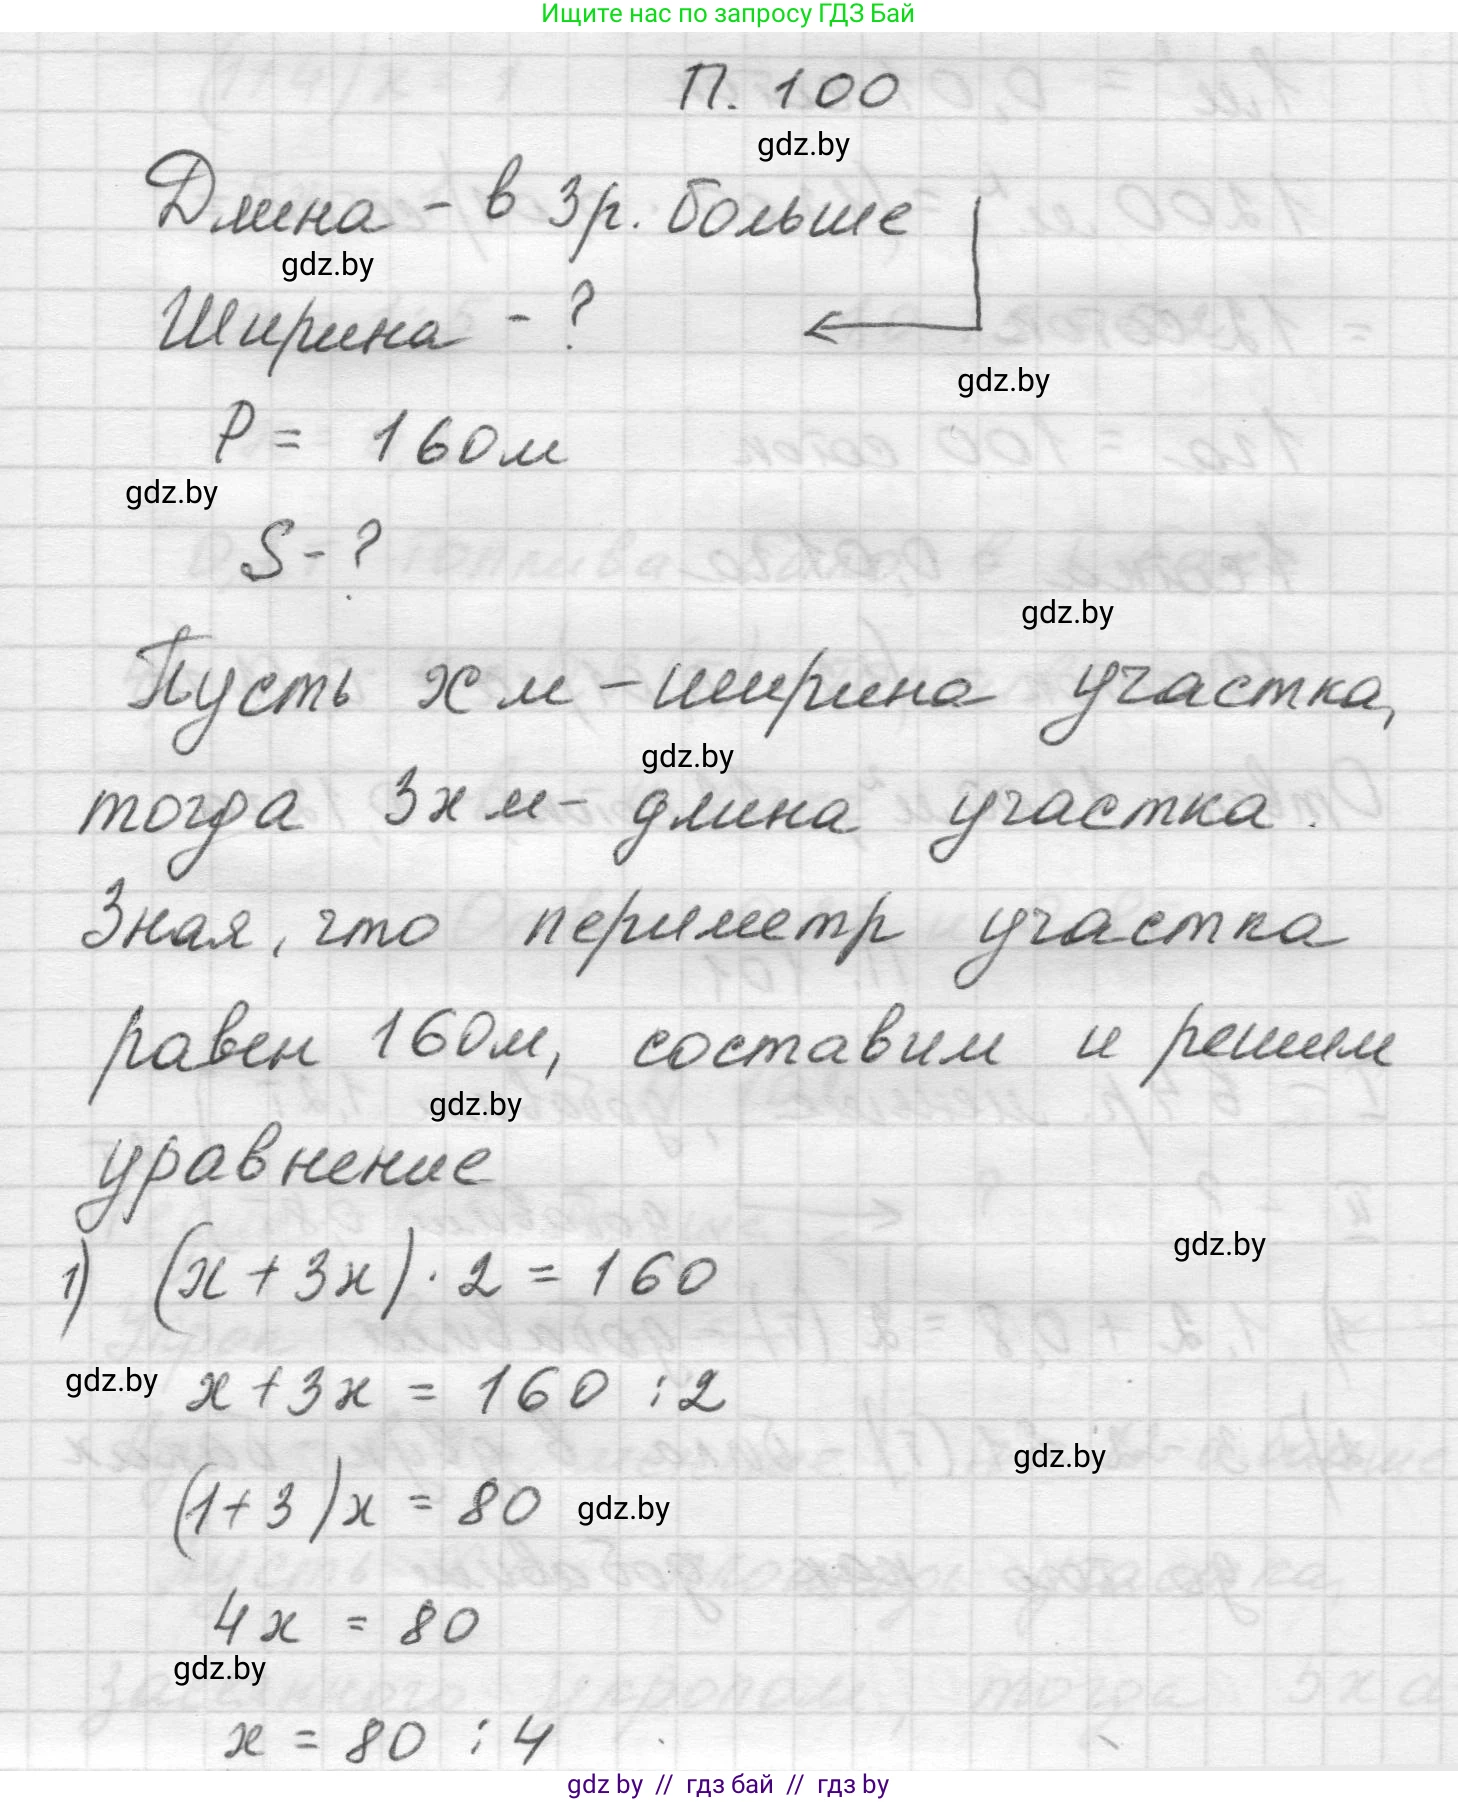 Ищите нас по запросу ГДЗ Бай
П. 100
gdz.by
Длина - в 3 р. больше
gdz.by
Ширина - ?
gdz.by
P = 160м
gdz.by
S - ?
gdz.by
Пусть x м - ширина участка,
gdz.by
тогда 3x м - длина участка.
Зная, что периметр участка
равен 160м, составим и решим
gdz.by
уравнение
gdz.by
1) (x + 3x) · 2 = 160
gdz.by x + 3x = 160 : 2
gdz.by
(1+3)x = 80 gdz.by
4x = 80
gdz.by
x = 80 : 4
gdz by // гдз бай // гдз by